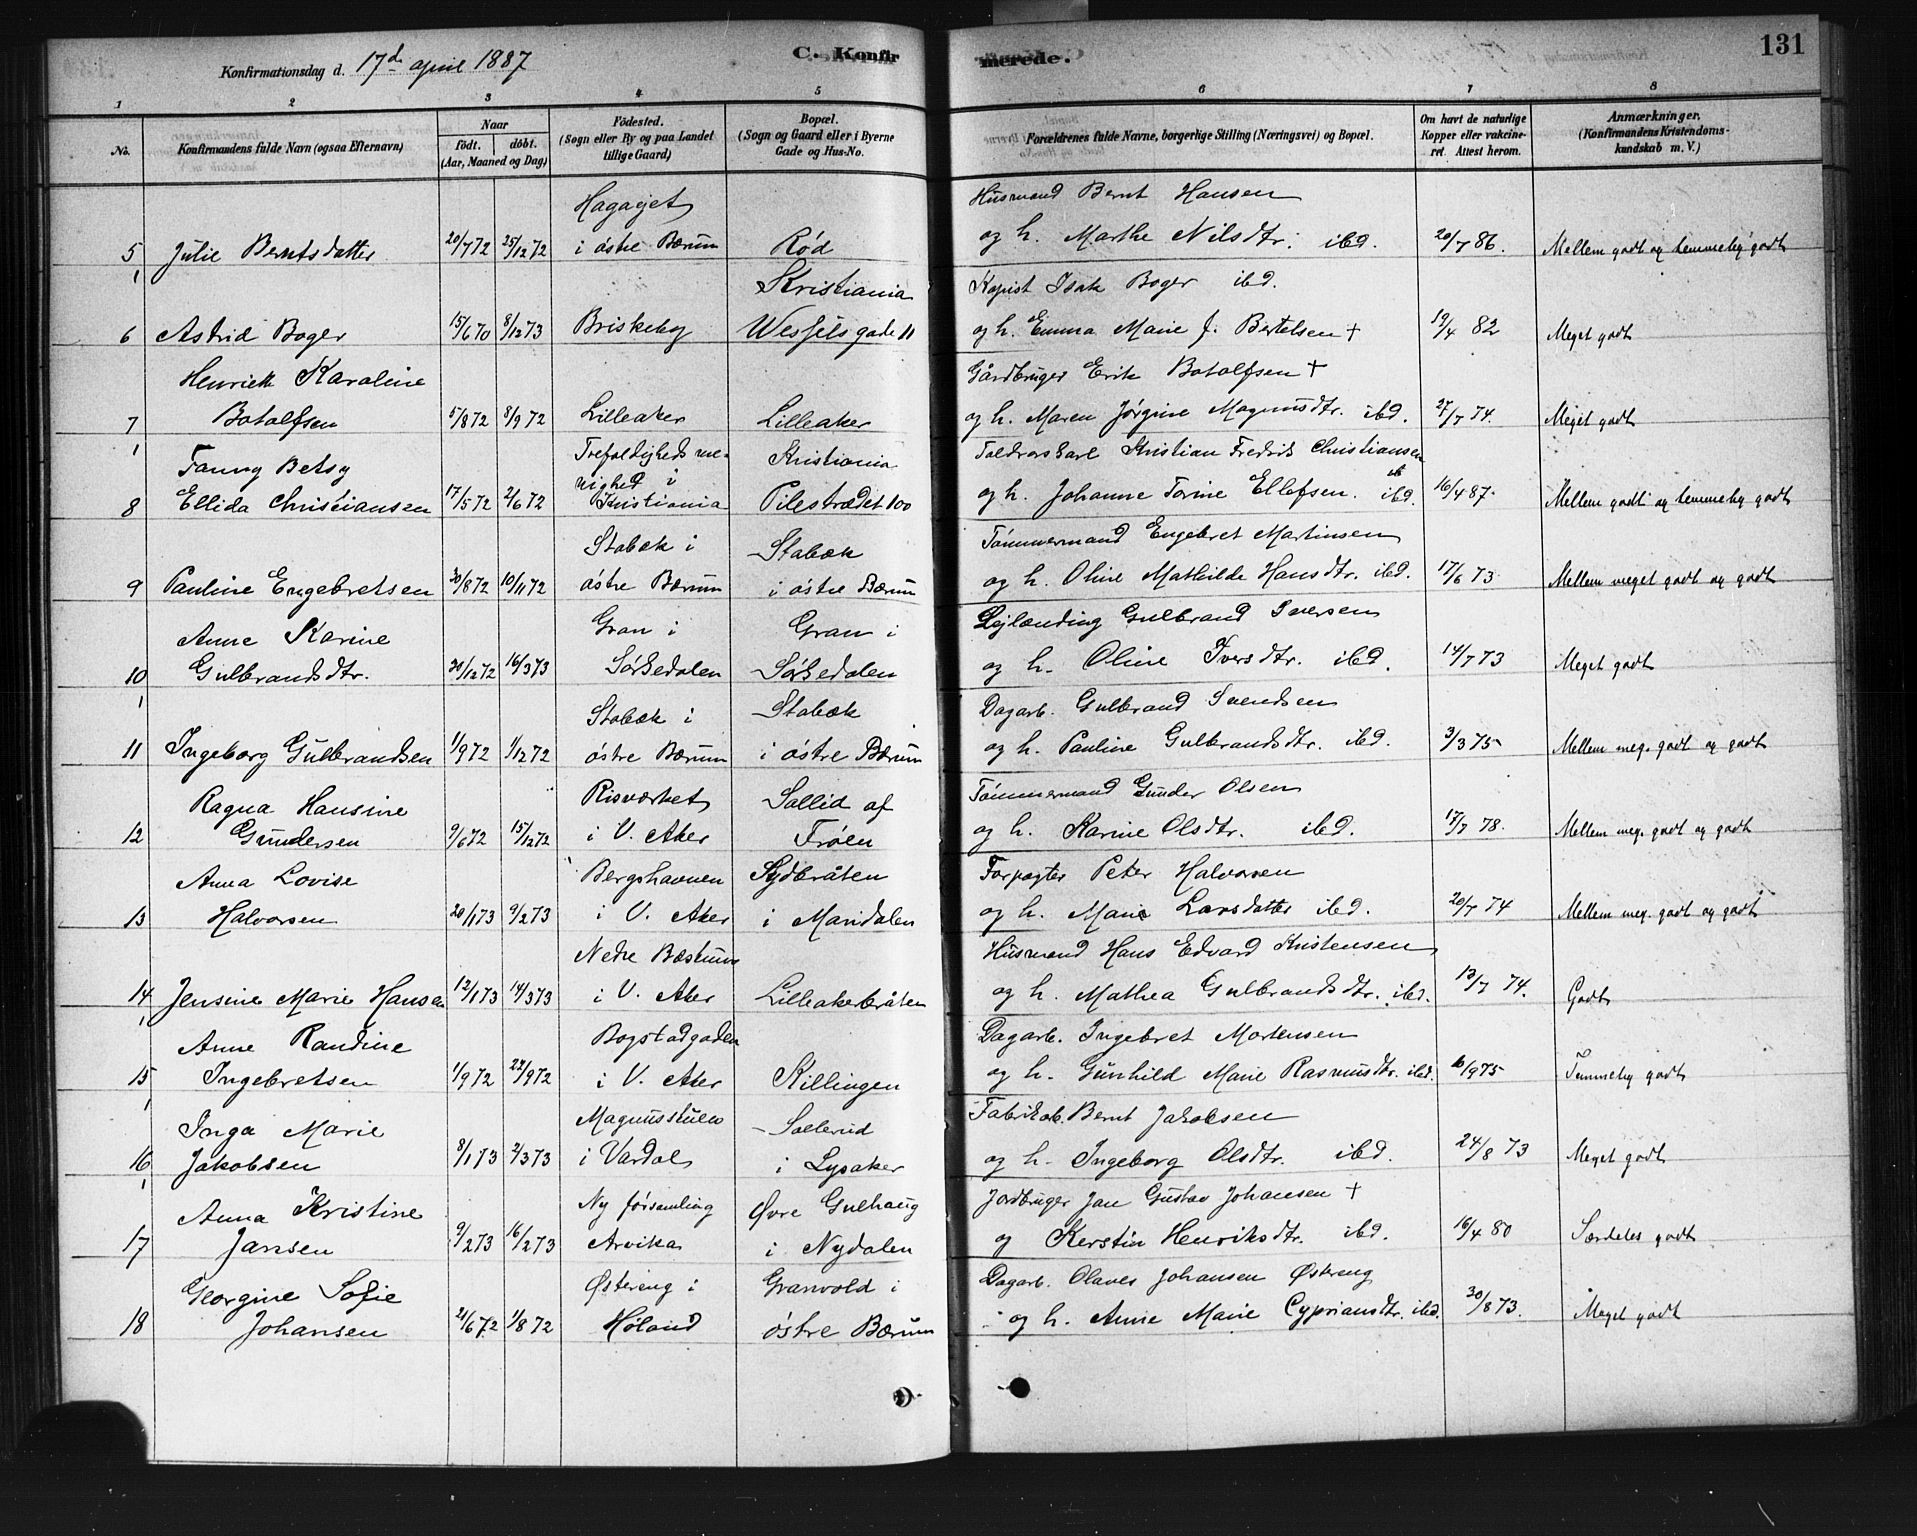 Konfirmationsdag d. 17d april 1887 C. Konfirmerede. 131
1 2 3 4 5 6 7 8
No. Konfirmandens fulde Navn (ogsaa Efternavn) Naar født. døbt. (Aar, Maaned og Dag) Fødested. (Sogn eller By og paa Landet tillige Gaard) Bopæl. (Sogn og Gaard eller i Byerne Gade og Hus-No. Forældrenes fulde Navne, borgerlige Stilling (Næringsvei) og Bopæl. Om havt de naturlige Kopper eller vakcineret. Attest herom. Anmærkninger. (Konfirmandens Kristendomskundskab m. V.)
Hagajet Husmand Bernt Hansen
5 Julie Berntsdatter 20/7 72 25/12 72 i østre Bærum Rød og h. Marthe Nilsdtr. ibd. 20/7 86. Mellem godt og temmelig godt
Kristiania Kopist Isak Boger ibd.
6 Astrid Boger 15/6 70 8/12 73 Briskeby Wessels gade 11 og h. Emma Marie J. Bertelsen + 19/4 82 Meget godt
Henriette Karoline Gårdbruger Erik Botolfsen +
7 Botolfsen 5/8 72 8/9 72 Lilleaker Lilleaker og h. Maren Jørgine Magnusdtr. ibd. 27/7 74. Meget godt
Fanny Betsy Trefoldigheds me- Kristiania Toldvorskarl Kristian Fredrik Christiansen
nighed i
8 Ellida Christiansen 17/5 72 2/6 72 Kristiania Pilestrædet 100 og h. Johanne Torine Ellefsen. ibd. 16/4 87. Mellem godt og temmelig godt
Stabæk i Stabæk Tømmermand Engebret Martinsen
9 Pauline Engebretsen 30/8 72 10/11 72 østre Bærum i østre Bærum og h. Oline Mathilde Hansdtr. ibd. 17/6 73 Mellem meget godt og godt
Anne Karine Gran i Gran i Lejlænding Gulbrand Iversen
10 Gulbrandsdtr. 20/12 72 16/3 73 Sørkedalen Sørkedalen og h. Oline Iversdtr. ibd. 14/7 73 Meget godt
Stabæk i Stabæk Dagarb. Gulbrand Svendsen
11 Ingeborg Gulbrandsen 1/9 72 1/12 72 østre Bærum i østre Bærum og h. Pauline Gulbrandsdtr. ibd. 3/3 75 Mellem meg. godt og godt
Ragna Hansine Risværket Sollid af Tømmermand Gunder Olsen
12 Gundersen 9/6 72 15/12 72 i V. Aker Frøen og h. Karine Olsdtr. ibd. 17/7 78. Mellem meg. godt og godt
Anna Lovise Bergshavnen Sydbråten Forpagter Peter Halvorsen
13 Halvorsen 20/1 73 9/2 73 i V. Aker i Maridalen og h. Marie Larsdatter ibd. 20/7 74 Mellem meg. godt og godt
Nedre Bæstum Husmand Hans Edvard Kristensen
14 Jensine Marie Hansen 12/1 73 14/3 73 i V. Aker Lilleakerbråten og h. Mathea Gulbrandsdtr. ibd. 13/7 74. Godt
Anne Randine Bogstadgaden Dagarb. Ingebret Mortensen
15 Ingebretsen 1/9 72 22/9 72 i V. Aker Killingen og h. Gunhild Marie Rasmusdtr. ibd. 10/9 75 Temmelig godt
Inga Marie Magnusstuen Sollerud Fabrikab. Bernt Jakobsen
16 Jakobsen 8/1 73 2/3 73 i Vardal i Lysaker og h. Ingeborg Olsdtr. ibd. 24/8 73 Meget godt
Anna Kristine Ny forsamling Øvre Gulhaug Jordbruger Jan Gustav Johansen +
17 Jansen 9/2 73 16/2 73 Arvika i Nydalen og Kerstin Henriksdtr. ibd. 16/4 80 Særdeles godt
Georgine Sofie Østereng i Granvold i Dagarb. Olaves Johansen Østreng
18 Johansen 21/6 72 1/8 72 Høland østre Bærum og h. Anne Marie Cypriansdtr. ibd. 30/8 73. Meget godt